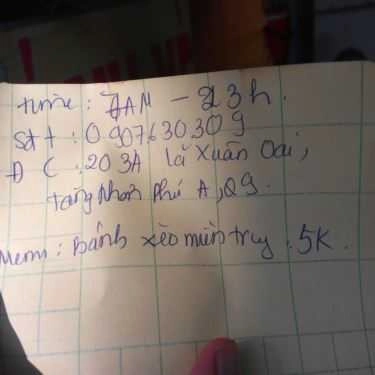 time: 7AM - 23h.
Sđt: 0907630309
Đ C: 203A Lã Xuân Oai,
tăng Nhơn Phú A, Q9.
Menu: Bánh xèo miền tây. 5K.